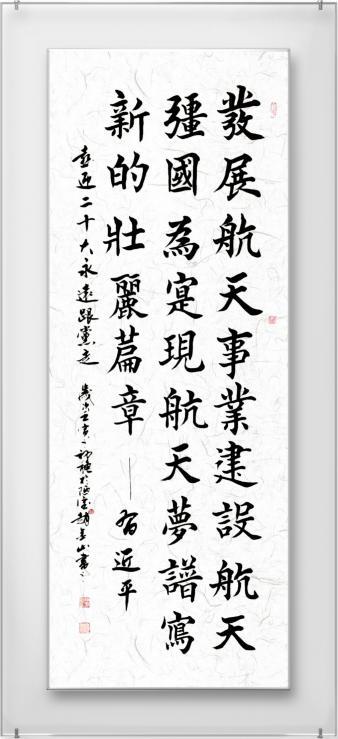 發展航天事業建設航天
彊國為寔現航天夢譜寫
新的壯麗篇章——習近平
喜迎二十大永遠跟黨走 歲次壬寅